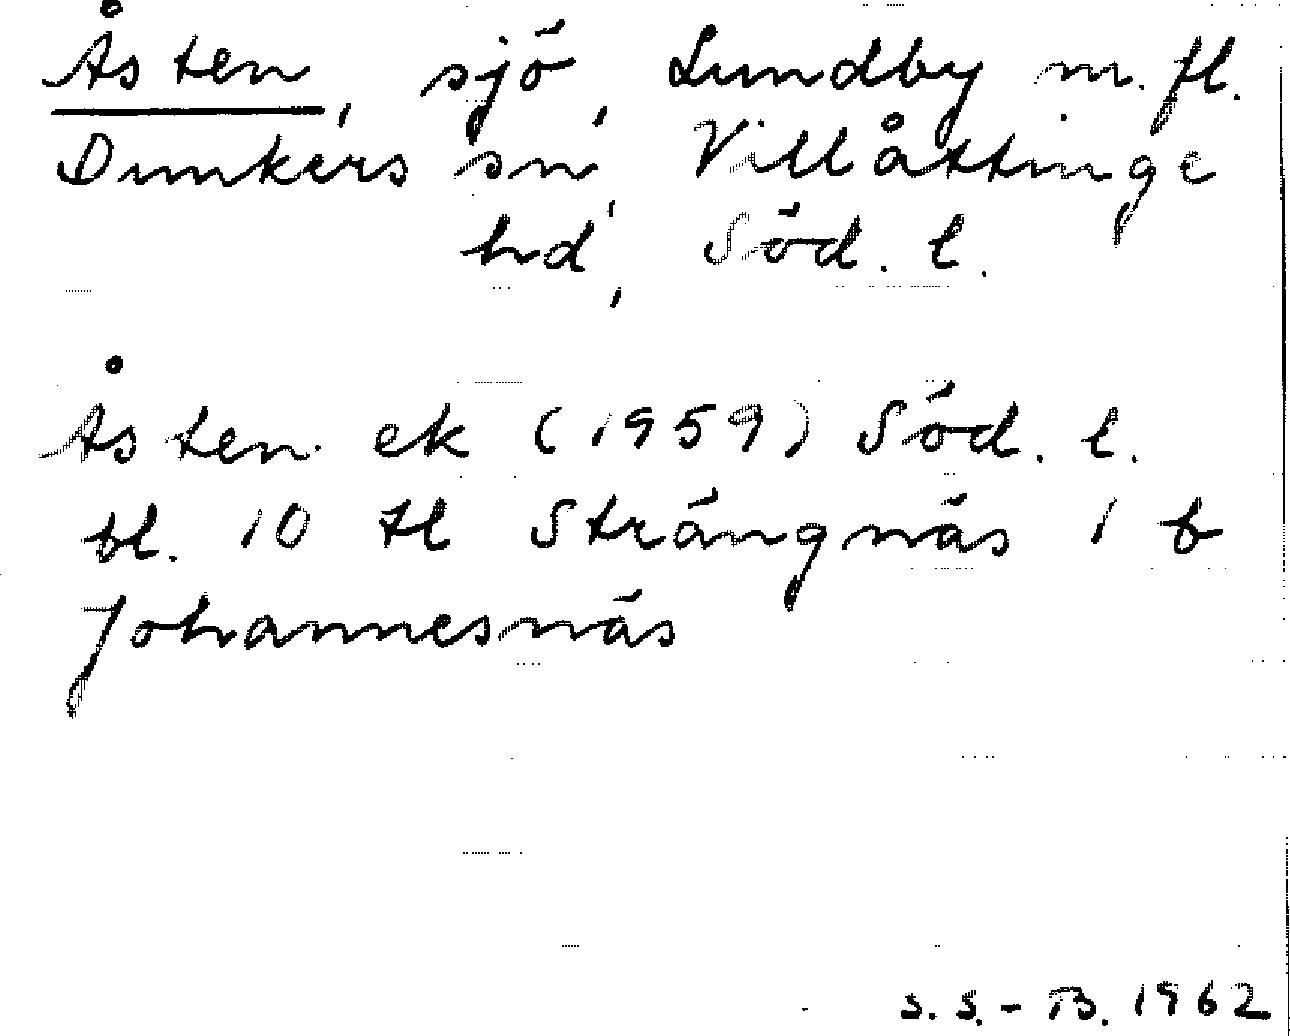 Åsten, sjö, Lundby m. fl.
Dunkers sn, Villåttinge
hd, Söd. l.
Åsten ek (1959) Söd. l.
bl. 10 tl Strängnäs 1 b
Johannesnäs
S. S. - B. 1962